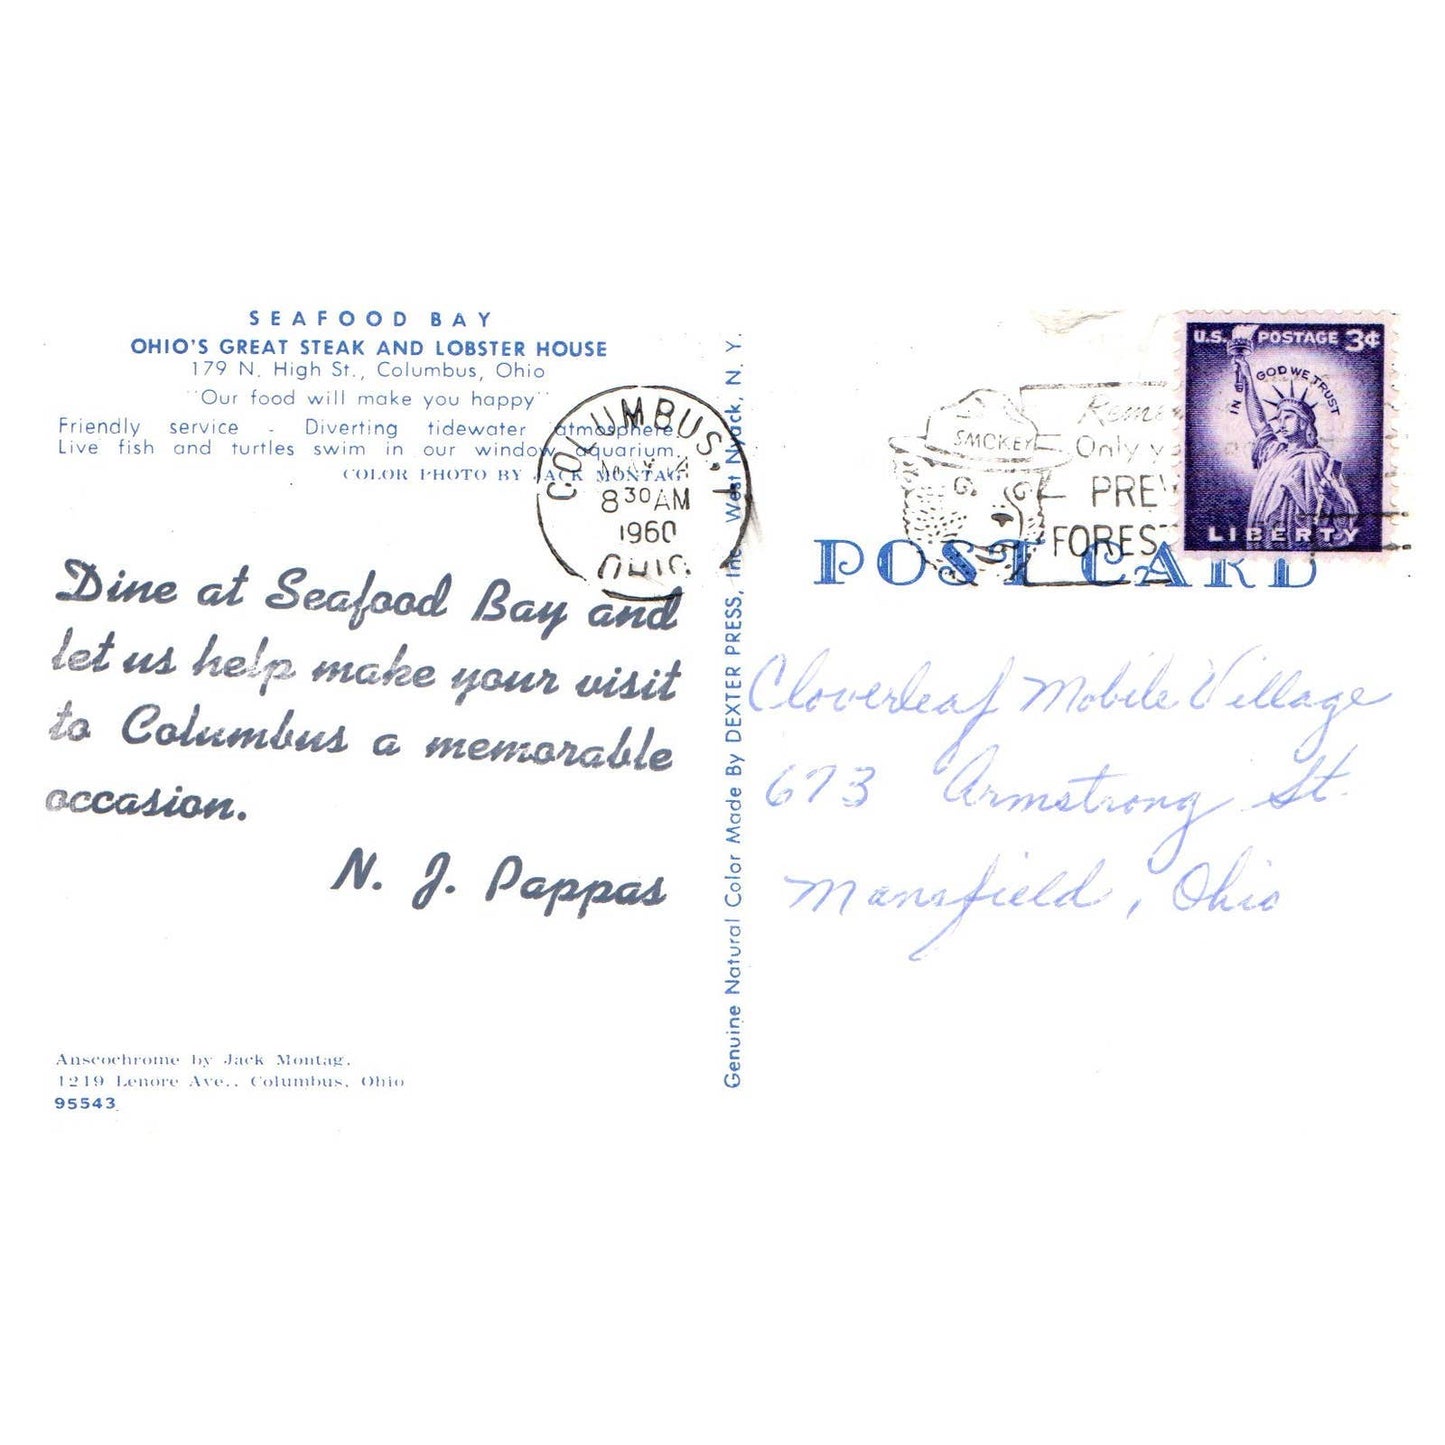 SEAFOOD BAY
OHIO'S GREAT STEAK AND LOBSTER HOUSE
179 N. High St., Columbus, Ohio
"Our food will make you happy"
Friendly service - Diverting tidewater atmosphere.
Live fish and turtles swim in our window aquarium.
COLOR PHOTO BY JACK MONTAG
COLUMBUS, 1
8 30 AM
1960
OHIO
Dine at Seafood Bay and
let us help make your visit
to Columbus a memorable
occasion.
N. J. Pappas
Anscochrome by Jack Montag.
1219 Lenore Ave., Columbus, Ohio
95543
Genuine Natural Color Made By DEXTER PRESS, Inc. West Nyack, N. Y.
SMOKEY
Only
U.S. POSTAGE 3¢
IN GOD WE TRUST
LIBERTY
POST CARD
Cloverleaf Mobile Village
673 Armstrong St.
Mansfield, Ohio